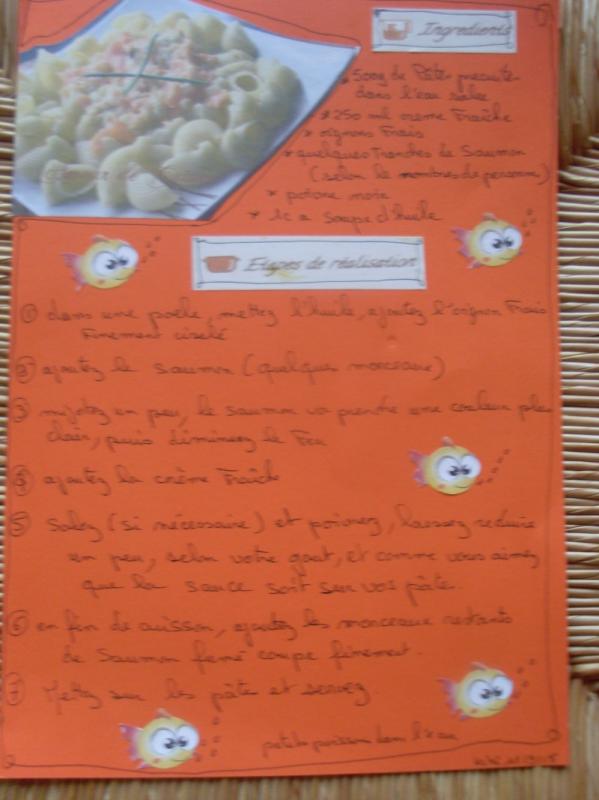 Ingredients
* 500g de Pâte precuite
dans l'eau salée
* 250 ml creme Fraîche
* oignons Frais
* quelques Tranches de Saumon
(selon le nombres de personne)
* poivre noir
* 1c a soupe d'huile
Etapes de réalisation
① dans une poele, mettez l'huile, ajoutez l'oignon Frais
Finement ciselé
② ajoutez le saumon (quelques morceaux)
③ mijotez un peu, le saumon va prendre une couleur plus
clair, puis diminuez le Feu
④ ajoutez la crème Fraîche
⑤ Salez (si nécessaire) et poivrez, laissez reduire
un peu, selon votre gout, et comme vous aimez
que la sauce soit sur vos pâte.
⑥ en fin de cuisson, ajoutez les morceaux restants
de Saumon fumé coupe finement.
⑦ Mettez sur les pâte et servez.
petits poissons dans l'eau